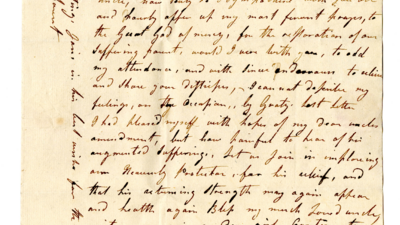 and hereby offer up my most fervent prayers, to
the Great God of mercy, for the restoration of our
suffering parent, would I were with you, to add
my attendance, and with sincere endeavours to relieve
and share your distress, I cannot describe my
feelings, on the occasion, by Goaty's last letter
I had blessed myself with hope of my dear uncles
amendment, but how painful to hear of his
augmented sufferings. let us Join in imploring
our Heavenly Protector, for his relief, and
that his returning strength may again appear
and health again Bless my much Loved uncle
Join in his best wishes for the